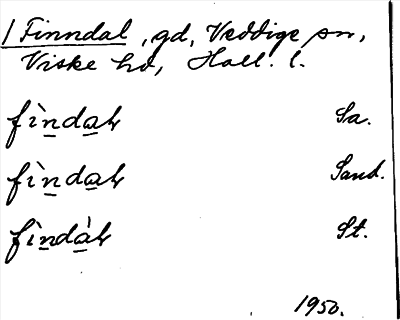 1 Finndal, gd, Veddige sn,
Viske hd, Hall. l.
fìndaɫ Sa.
fìndaɫ Sand.
fìndàɫ St.
1950.